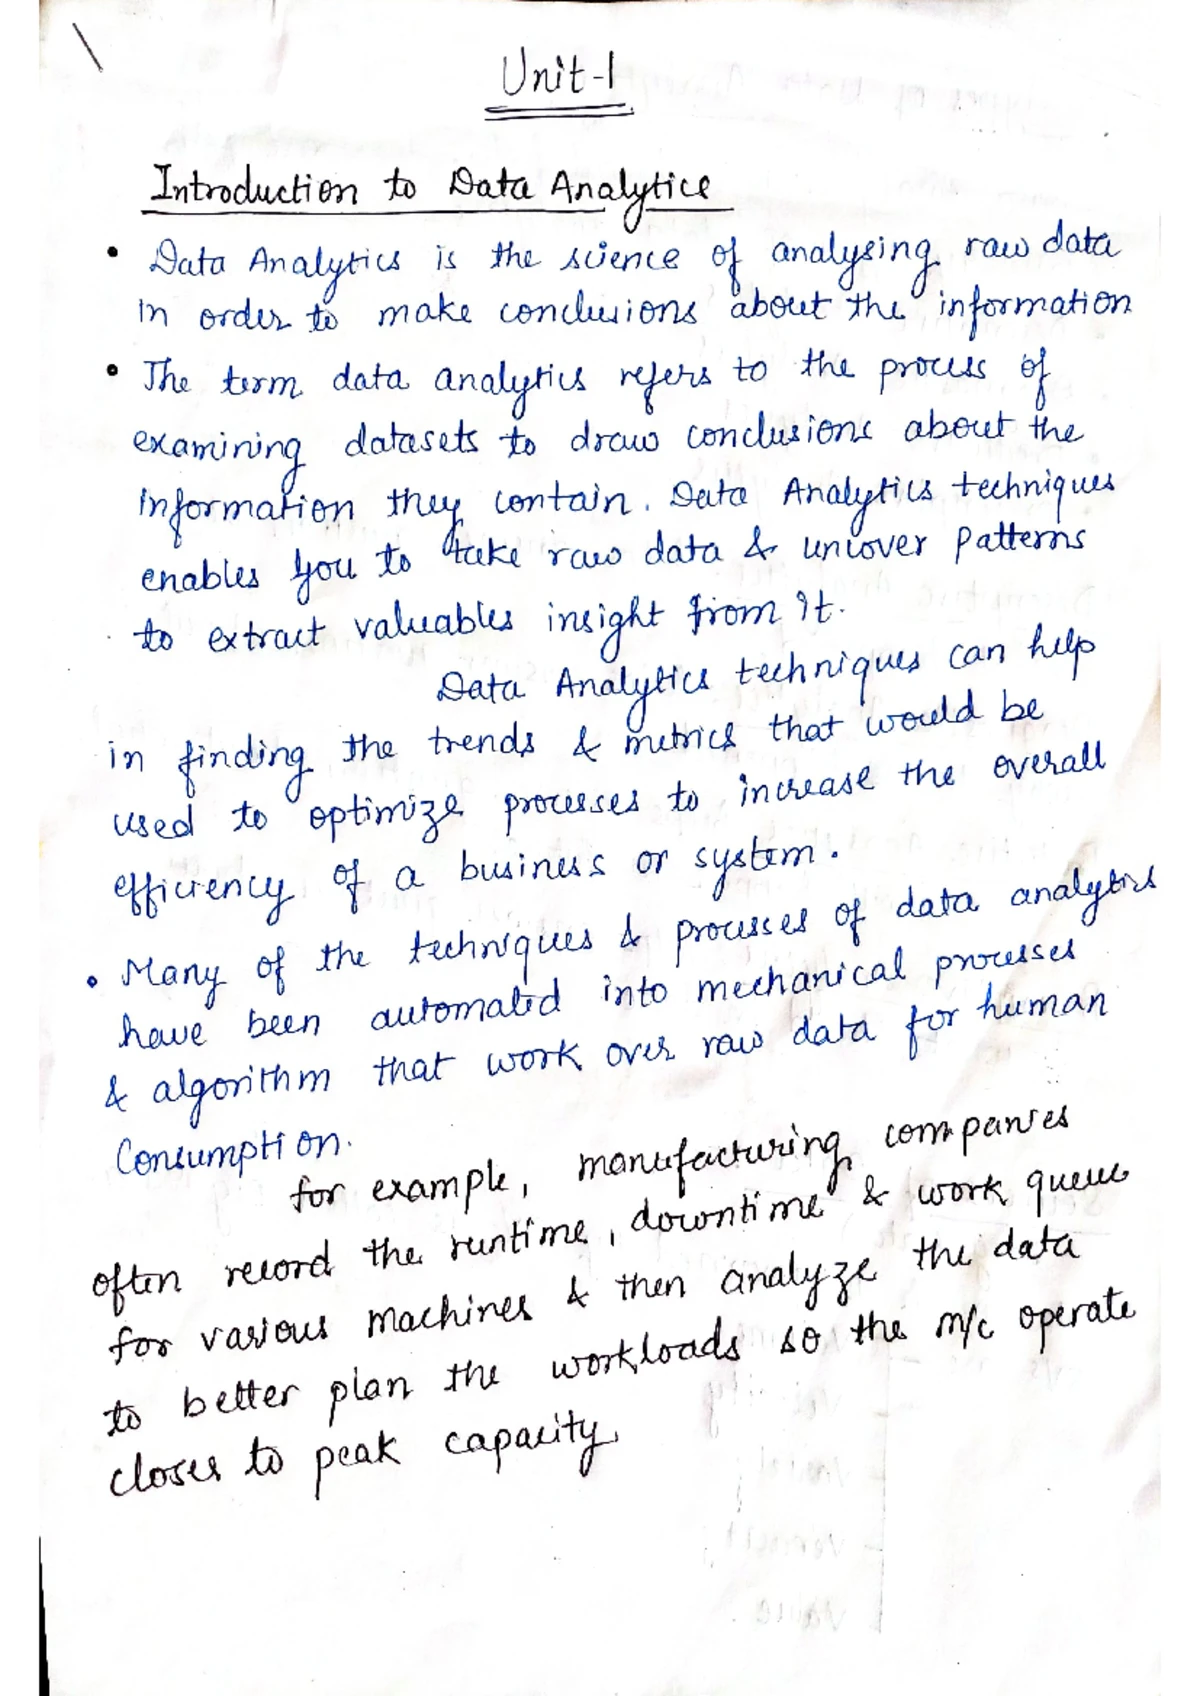 Unit-1
Introduction to Data Analytics
• Data Analytics is the science of analysing raw data
in order to make conclusions about the information
• The term data analytics refers to the process of
examining datasets to draw conclusions about the
information they contain. Data Analytics techniques
enables you to take raw data & uncover patterns
to extract valuables insight from it.
Data Analytics techniques can help
in finding the trends & metrics that would be
used to optimize processes to increase the overall
efficiency of a business or system.
• Many of the techniques & processes of data analytics
have been automated into mechanical processes
& algorithm that work over raw data for human
Consumption.
for example, manufacturing companies
often record the runtime, downtime & work queue
for various machines & then analyze the data
to better plan the workloads so the m/c operate
closer to peak capacity.